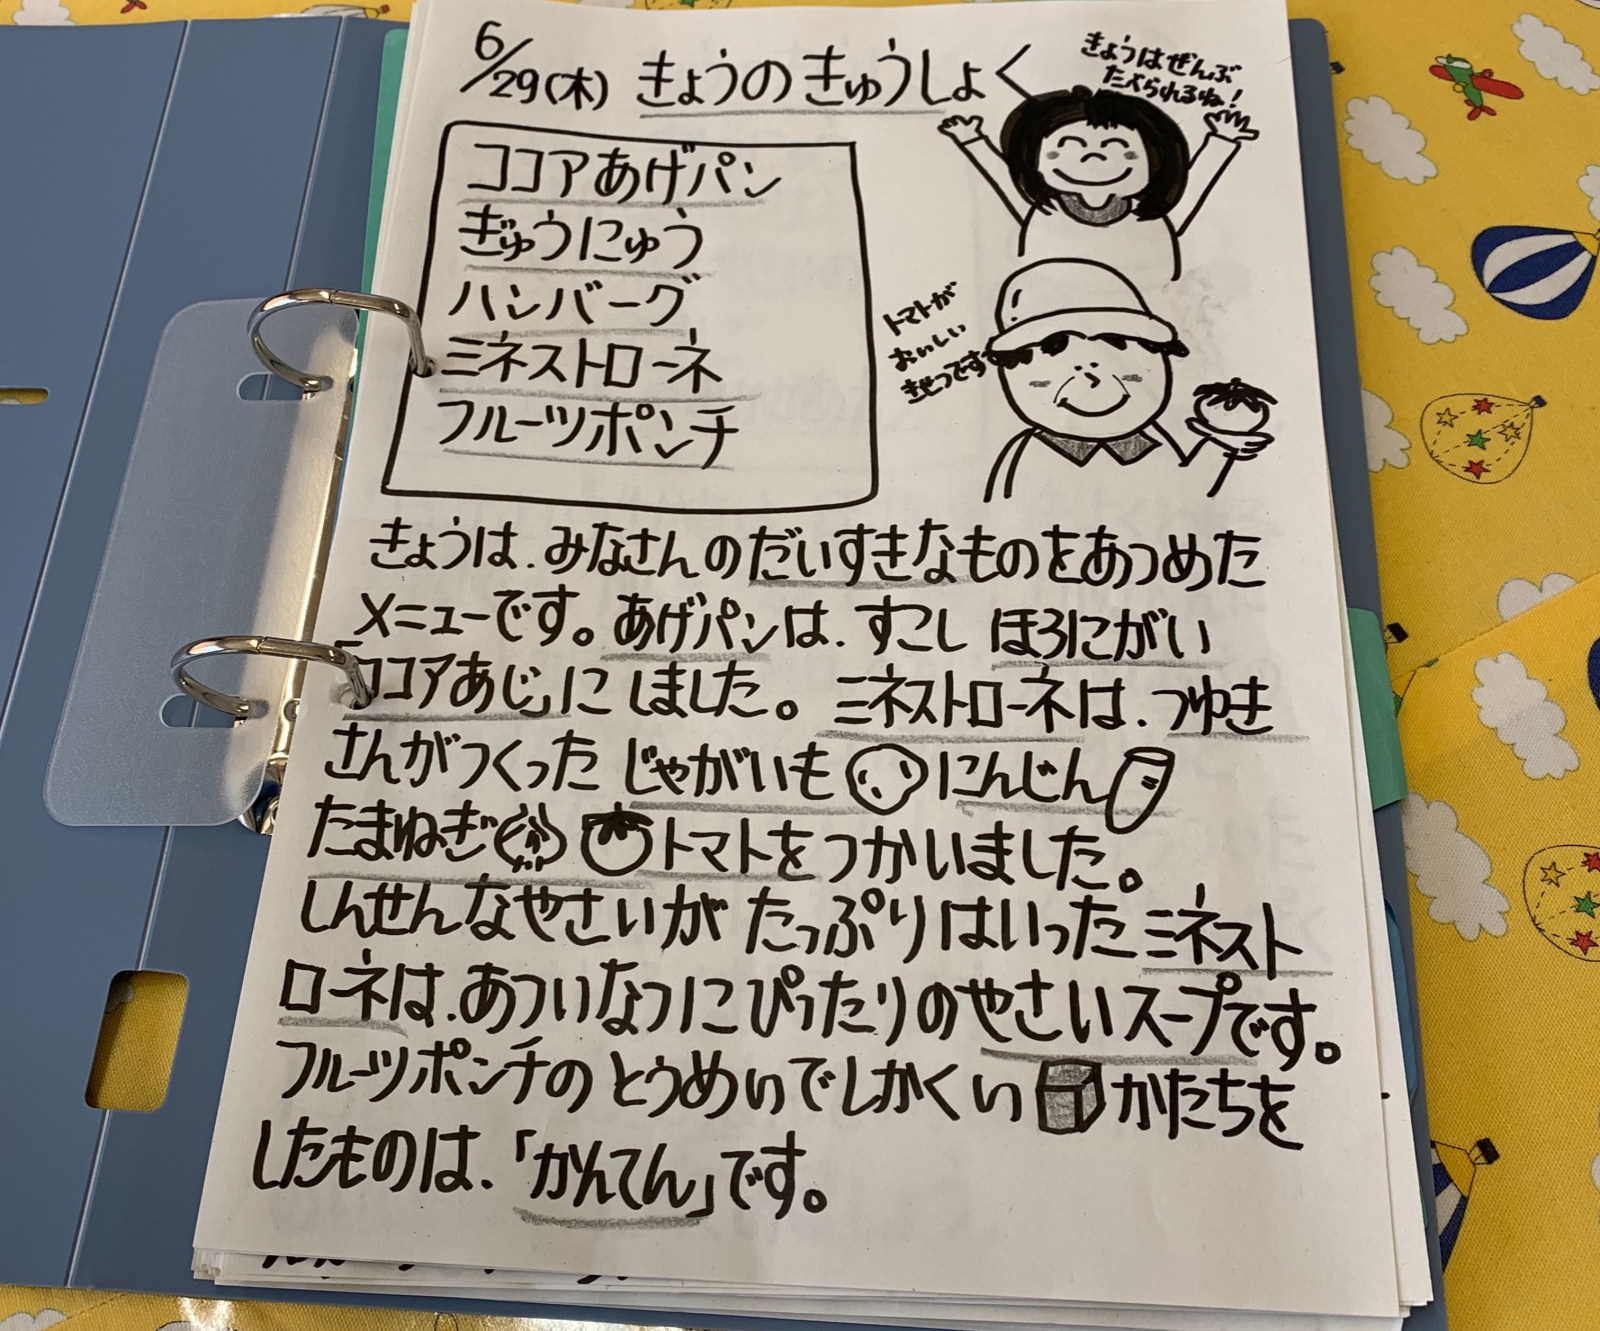 6/29(木) きょうのきゅうしょく
きょうはぜんぶ
たべられるね!
ココアあげパン
ぎゅうにゅう
ハンバーグ
ミネストローネ
フルーツポンチ
トマトが
おいしい
きせつです
きょうは、みなさんのだいすきなものをあつめた
メニューです。あげパンは、すこし ほろにがい
「ココアあじ」にしました。ミネストローネは、つゆき
さんがつくった じゃがいも にんじん
たまねぎ トマトをつかいました。
しんせんなやさいが たっぷりはいったミネスト
ローネは、あついなつにぴったりのやさいスープです。
フルーツポンチのとうめいでしかくい かたちを
したものは、「かんてん」です。